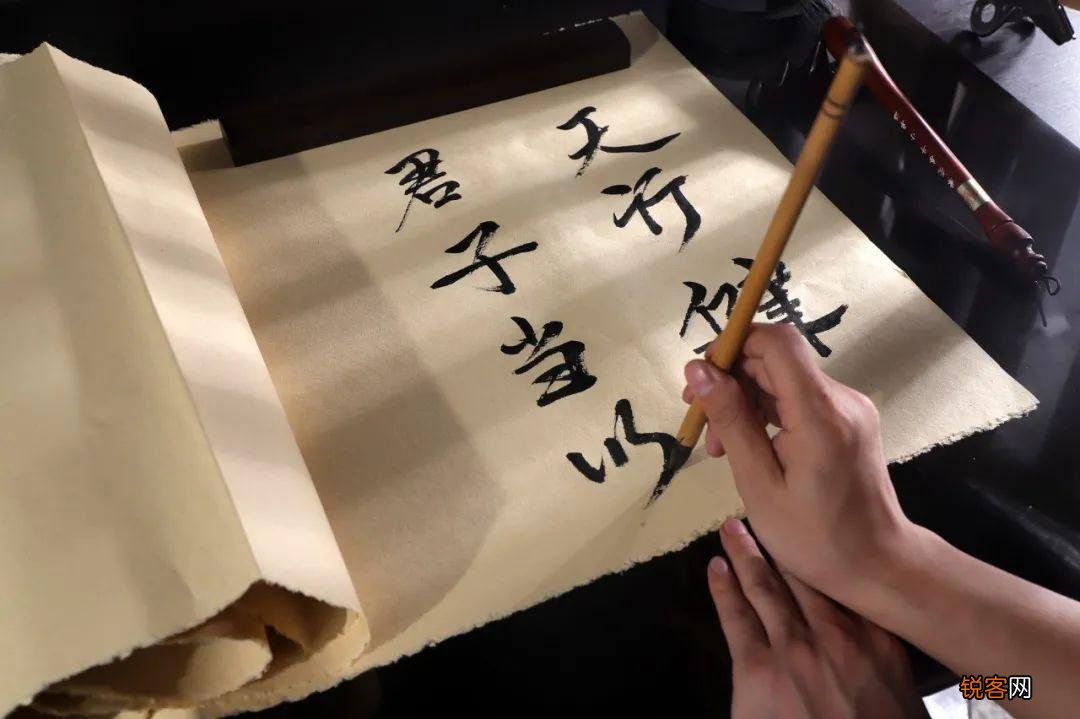 天行健
君子当以
锐客网